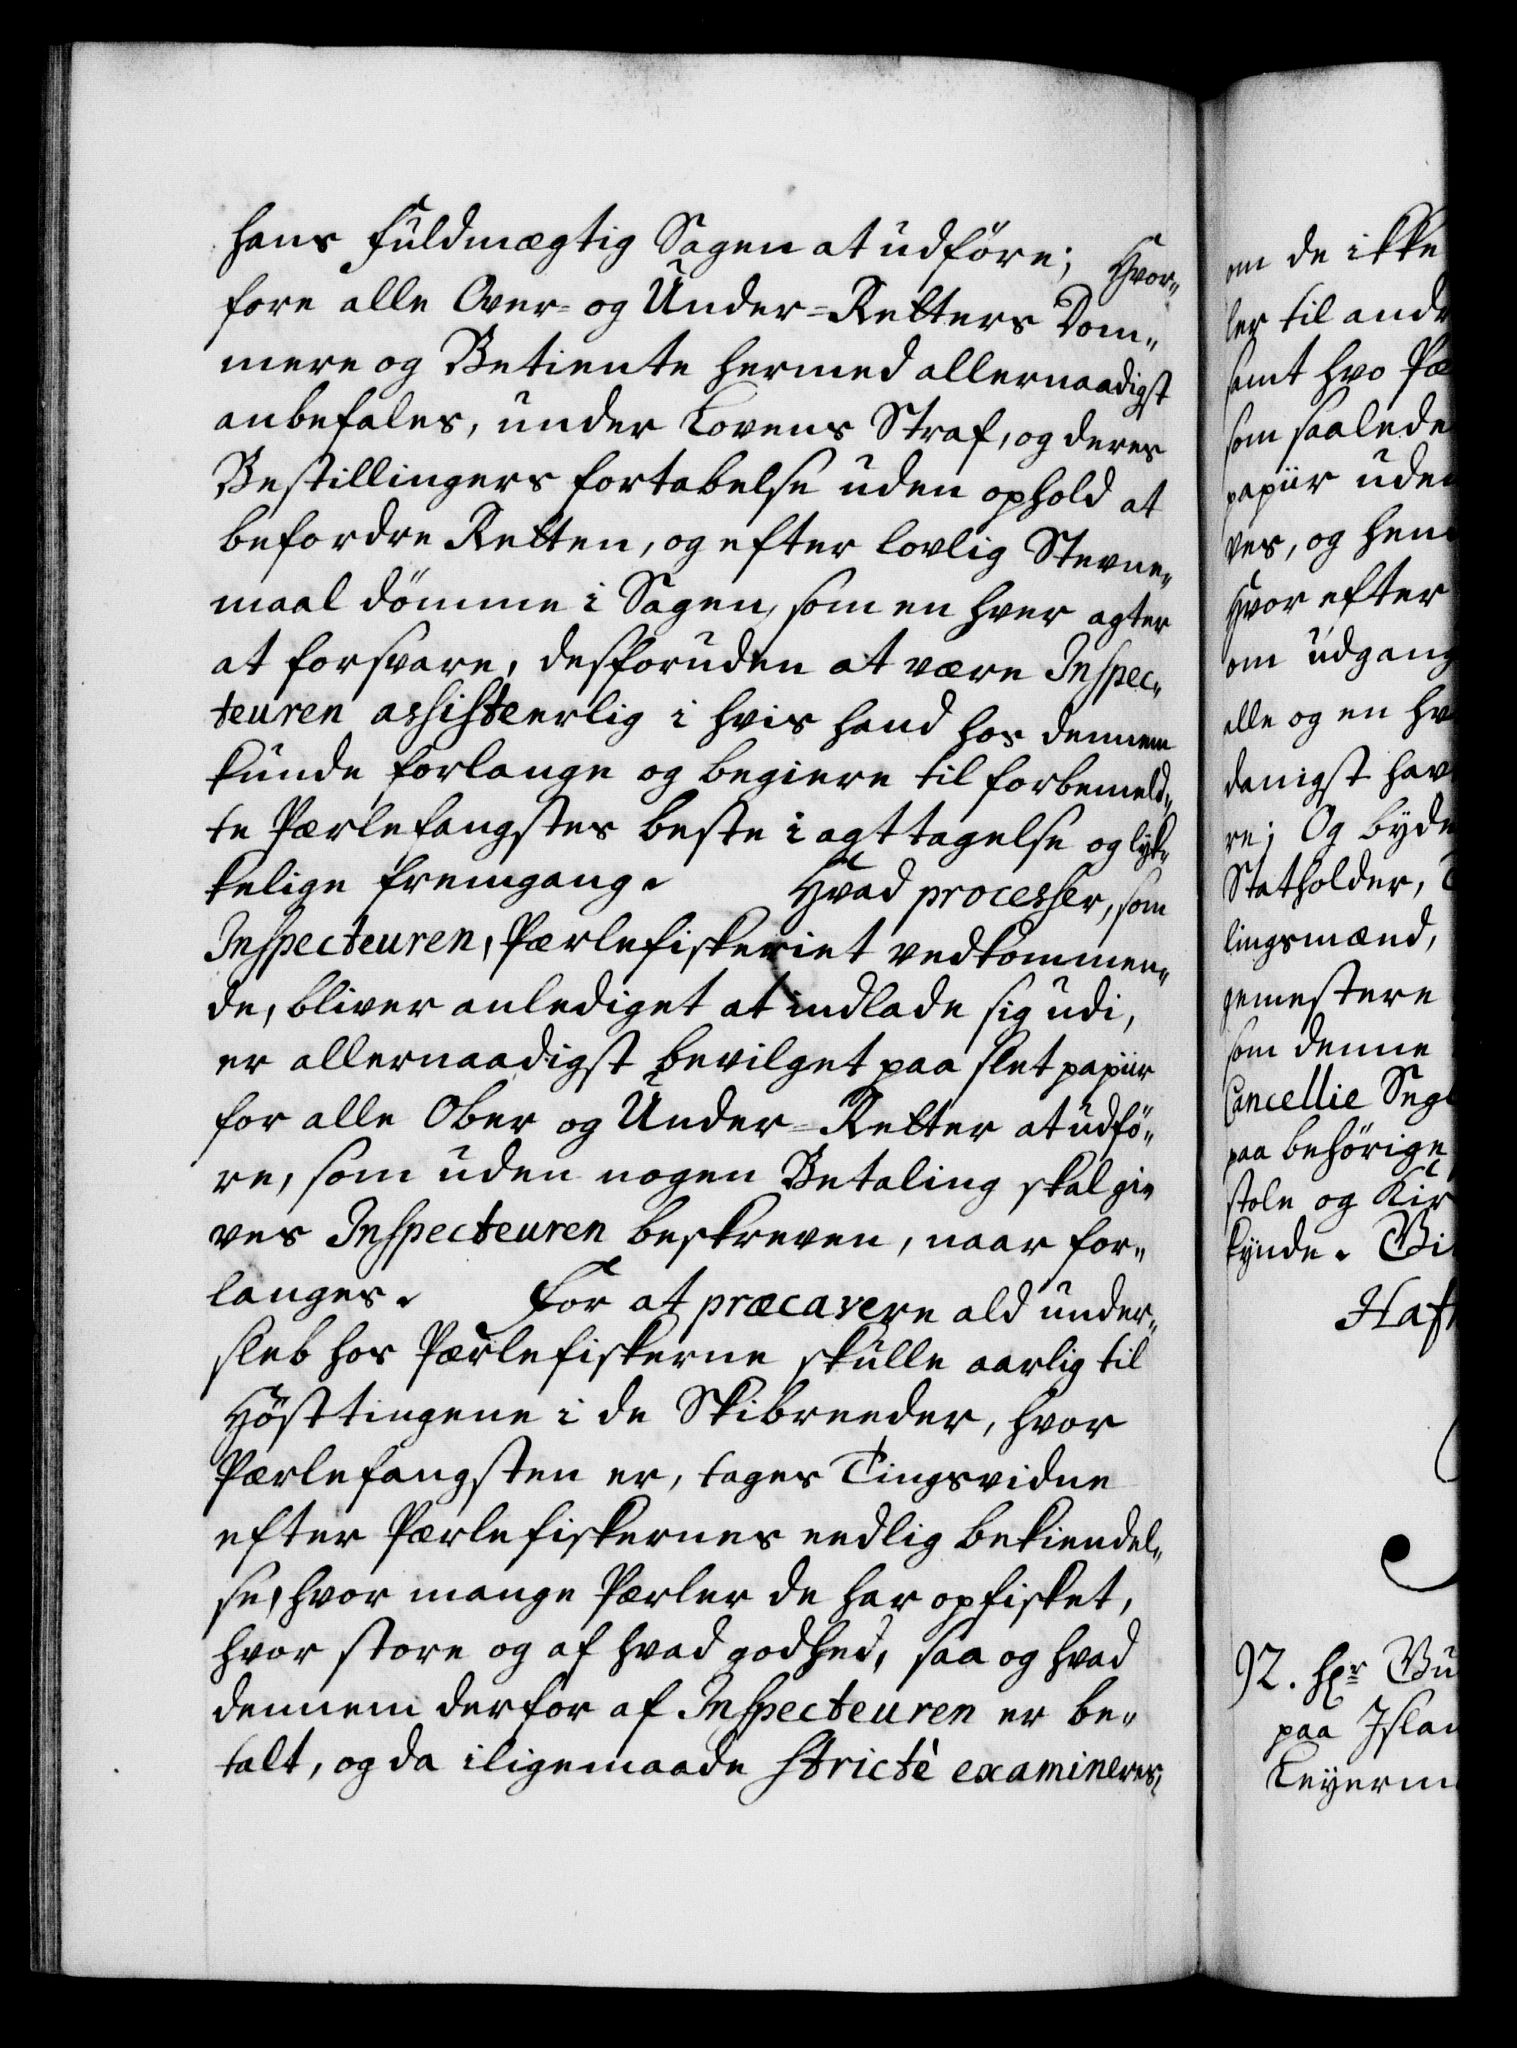 hans Fuldmægtig Sagen at udföre; Hvor-
fore alle Over- og Under-Retters Dom-
mere og Betiente hermed allernaadigst
anbefales, under Lovens Straf, og deres
Bestillingers fortabelse uden ophold at
befordre Retten, og efter lovlig Stevne-
maal dömme i Sagen, som en hver agter
at forsvare, desforuden at være Inspec-
teuren assisteerlig i hvis hand hos dennem
kunde forlange og begiere til forbemeld-
te Pærlefangstes beste i agttagelse og lyk-
kelige fremgang. Hvad processer, som
Inspecteuren, Pærlefiskeriet vedkommen-
de, bliver anlediget at indlade sig udi,
er allernaadigst bevilget paa slet papiir
for alle Ober og Under-Retter at udfö-
re, som uden nogen Betaling skal gi-
ves Inspecteuren beskreven, naar for-
langes. For at præcavere ald under-
sleb hos Pærlefiskerne skulle aarlig til
Hösttingene i de Skibreeder, hvor
Pærlefangsten er, tages Tingsvidne
efter Pærlefiskernes eedlig bekiendel-
se, hvor mange Pærler de har opfisket,
hvor store og af hvad godhed, saa og hvad
dennem derfor af Inspecteuren er be-
talt, og da iligemaade strictè examineres,
om de ikke
ler til andr
samt hvo Pæ
som saalede
papiir uden
ves, og hen
Hvor efter
om udgang
alle og en hv
danigst hav
re; Og byde
Statholder,
lingsmænd,
gemestere
som denne
Cancellie Segl
paa behörige
stole og Kir
kynde. Gi
Haf
92. Hr Gu
paa Islan
Leyerm